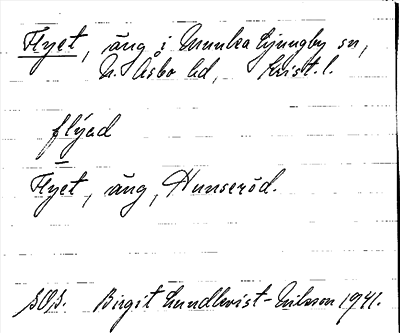 Flyet, äng i Munka Ljungby sn,
N. Åsbo hd, Krist. l.
flýəd
Flyet, äng, Hunseröd.
Birgit Lundkvist-Nilsson 1941.